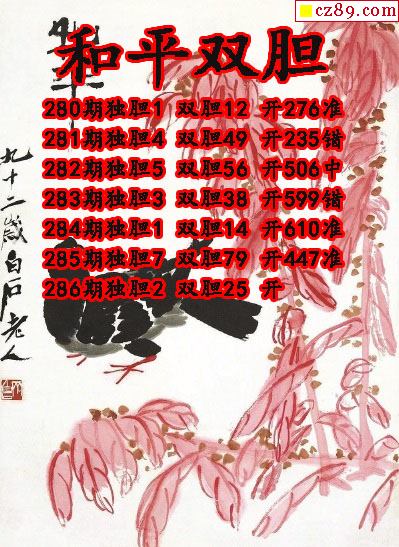 cz89.com
和平双胆
280期独胆1 双胆12 开276准
281期独胆4 双胆49 开235错
282期独胆5 双胆56 开506中
283期独胆3 双胆38 开599错
284期独胆1 双胆14 开610准
285期独胆7 双胆79 开447准
286期独胆2 双胆25 开
九十二岁白石老人